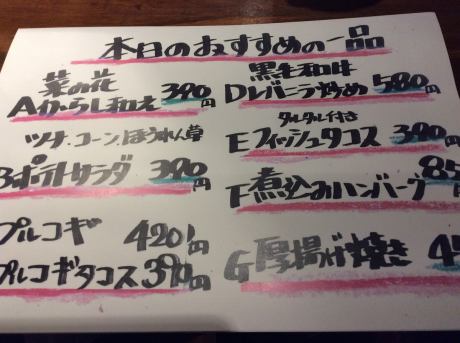 本日のおすすめの一品
菜の花
Aからし和え 390円
ツナ、コーン、ほうれん草
Bポテトサラダ 390円
プルコギ 420円
プルコギタコス 390円
黒毛和牛
Dレバニラ炒め 580円
タルタル付き
Eフィッシュタコス 390円
F煮込みハンバーグ 85 円
G厚揚げ焼き 4